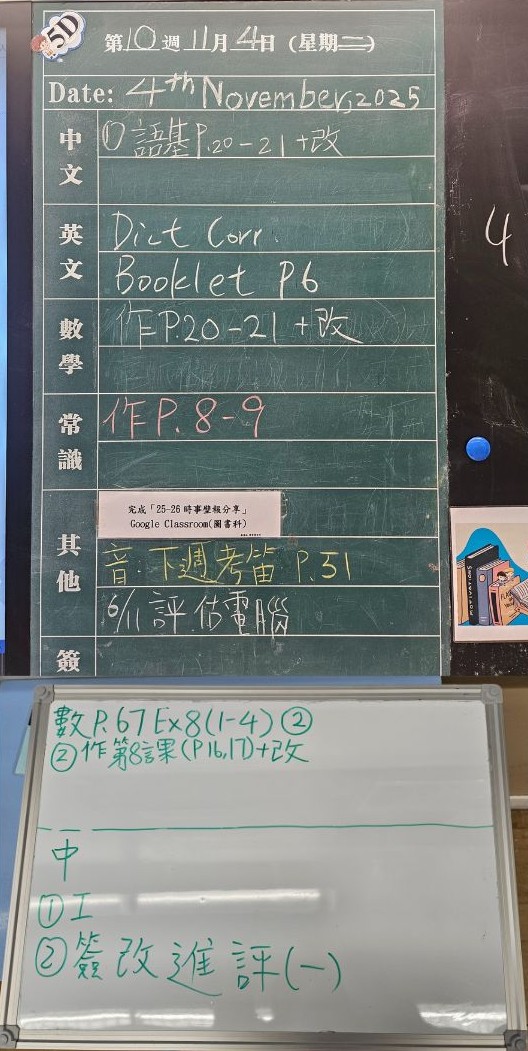 5D
第10週11月4日 (星期二)
Date: 4th November, 2025
中文
① 語基P.20-21+改
英文
Dict Corr.
Booklet P6
數學
作P.20-21+改
常識
作P. 8-9
其他
完成「25-26時事壁報分享」
Google Classroom(圖書科)
音:下週考笛 P.51
6/11評估電腦
簽
4
數P.67 Ex8(1-4) ②
②作第8課(P16,17)+改
中
①工
②簽改進評(一)